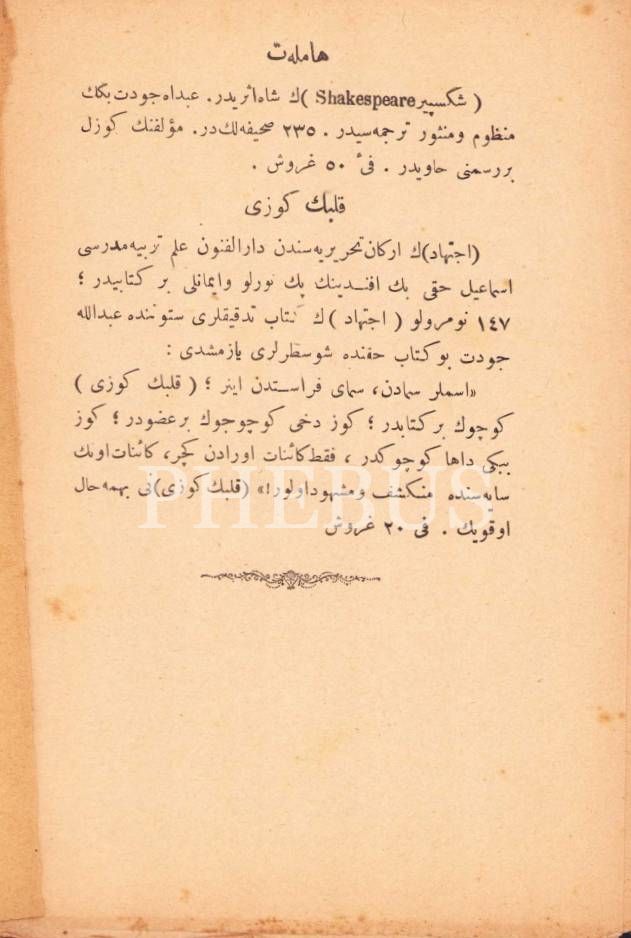 هامله‌ت
( شكسپير Shakespeare )ك شاه اثريدر. عبداه جودت بكك
منظوم ومنثور ترجمه‌سيدر . ٢٣٥ صحيفه‌لك‌در. مؤلفنك كوزل
بر رسمنى حاويدر . فىٔ ٥٠ غروش .
قلبك كوزى
(اجتهاد)ك اركان تحريريه‌سندن دارالفنون علم تربيه مدرسى
اسماعيل حقى بك افنـدينك پك نورلو وايمانلى بر كتابيدر ؛
١٤٧ نومرولو ( اجتهاد )ك كتاب تدقيقلرى ستوننده عبدالله
جودت بو كتاب حقنده شو سطرلرى يازمشدى :
«اسملر سمادن، سماى فراسـتدن اينر ؛ ( قلبك كوزى )
كوچوك بر كتابدر ؛ كوز دخى كوچوجوك بر عضودر ؛ كوز
ببكى داها كوچوكدر ، فقط كائنات اورادن كچر، كائنات اونك
سايه‌سنده منكشف ومشهود اولور!» (قلبك كوزى)نى بهمه‌حال
اوقويك . فى ٢٠ غروش
PHEBUS